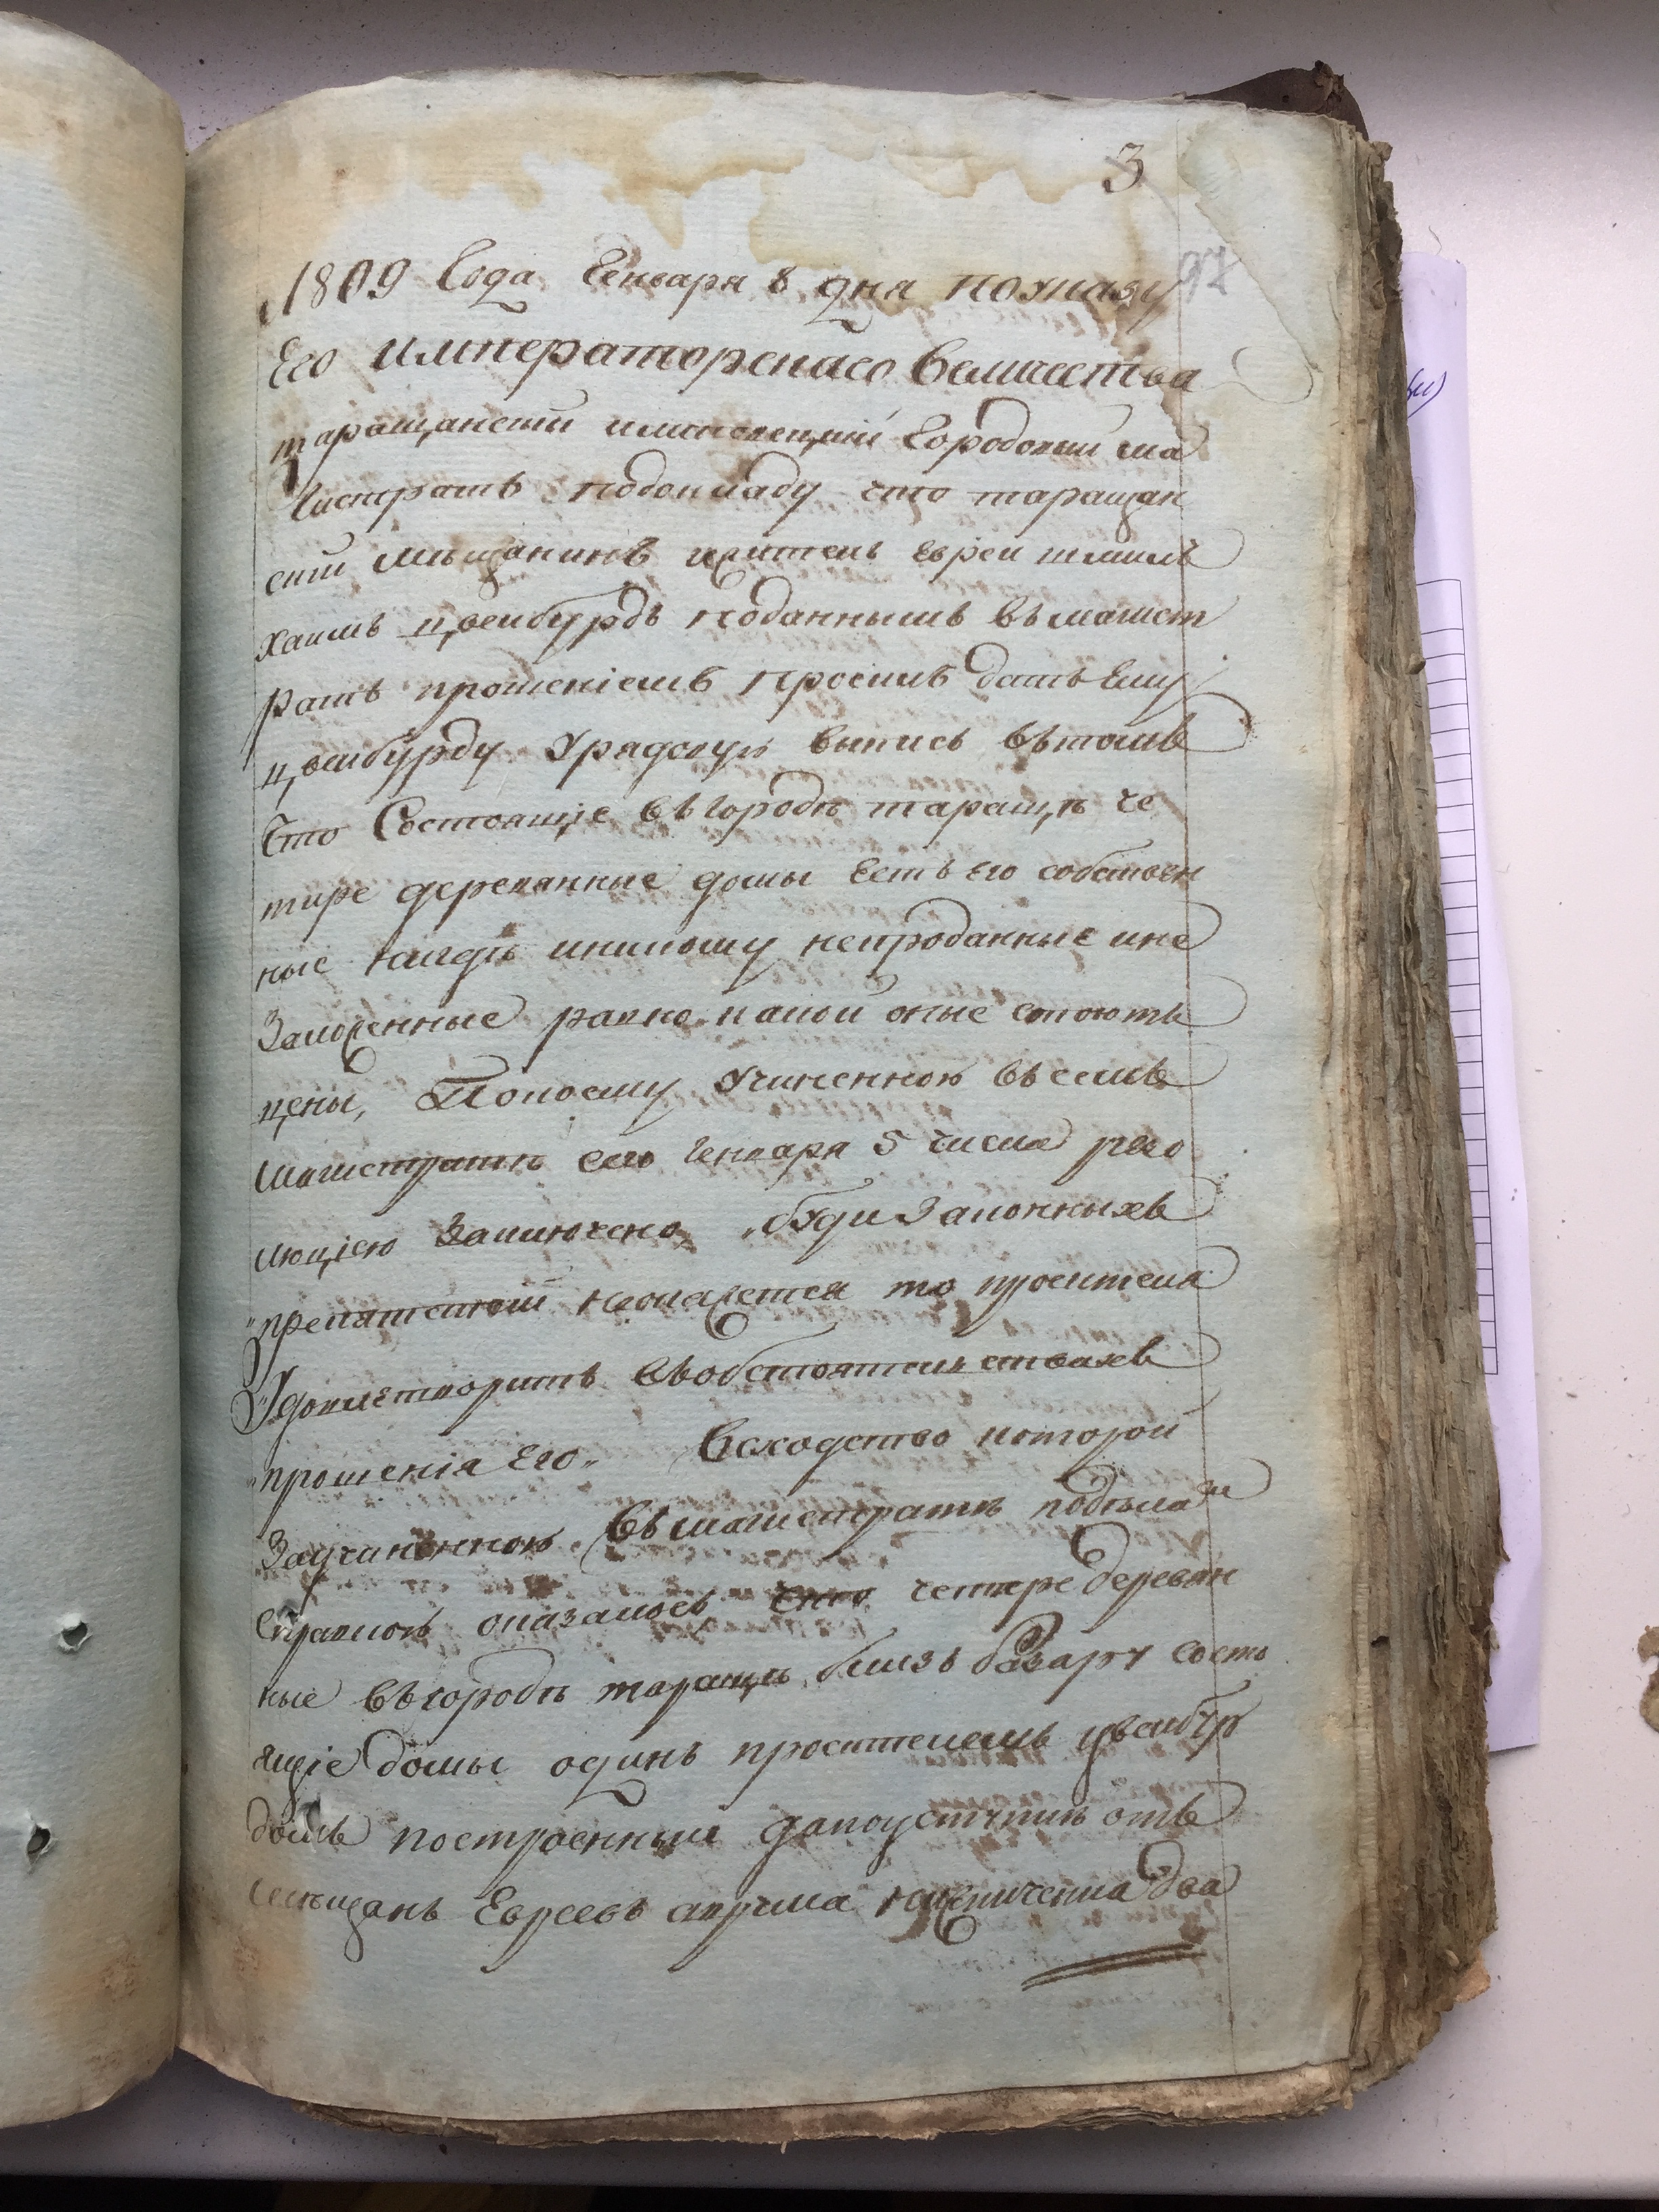 3
97
1809 Года Генваря 8 дня по указу
Его императорскаго Величества
таращанский Городовий ма
гистратъ подокладу что таращан
ский мѣщанинъ житель еврей шмиль
хаимъ цвейбурдъ поданнымъ въ магист
ратъ прошеніемъ просилъ дать Ему
цвейбурду Урядовую выпись втомъ
Что Состоящіе въ городѣ таращѣ че
тире деревянные домы есть Его собствен
ные нигдѣ иникому непроданные ине
Заложенные равно какой оные стоютъ
цены, Покоему Учиненною въ семъ
магистратѣ сего Генваря 5 числа резо
люціею Заключено, „буди Законныхъ
„препятствий неокажется то просителя
„Удовлетворить въобстоятельствахъ
„прошенія Его„ Всходство которой
Заучиненною въ магистратѣ подѣлам
справкою оказалось что четире деревян
ные въ городѣ таращѣ близъ базару состо
ящіе домы одинъ просителемъ цвейбур
домъ построенный даполуступкѣ отъ
мѣщанъ Евреевъ два